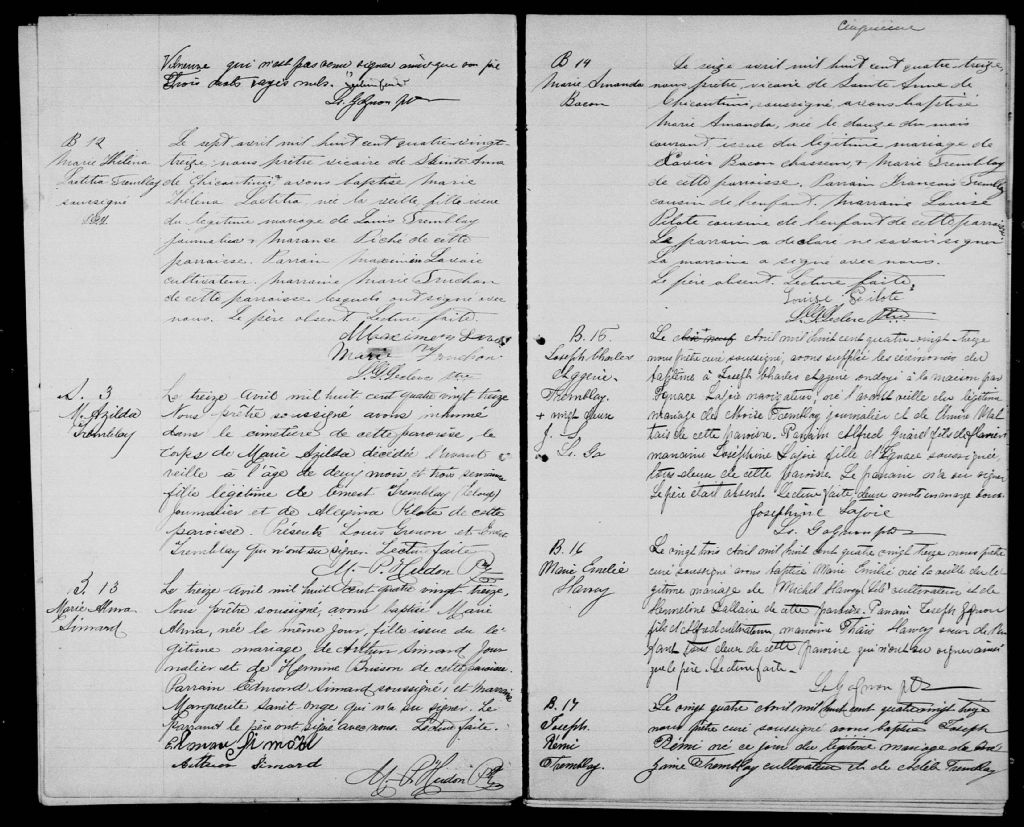 qui n'est pas venu signer ainsi que son père
Trois mots rayés nuls.
Ls. Gagnon ptre
B 12
Marie Hélèna
Laetitia Tremblay
soussigné
Le sept avril mil huit cent quatre-vingt-
treize, nous prêtre vicaire de Sainte Anne
de Chicoutimi, avons baptisé Marie
Hélèna Laetitia née la veille fille issue
du légitime mariage de Louis Tremblay
journalier & Marance Piché de cette
paroisse. Parrain Maximien Lavoie
cultivateur, marraine Marie Truchon
de cette paroisse lesquels ont signé avec
nous. Le père absent. Lecture faite.
Marie Truchon
Leclerc ptre
S. 3
M. Azilda
Tremblay
Le treize Avril mil huit cent quatre vingt treize
Nous prêtre soussigné avons inhumé
dans le cimetière de cette paroisse, le
corps de Marie Azilda décédée l'avant
veille à l'âge de deux mois et trois semaines
fille légitime de Ernest Tremblay
journalier et de Alexina Pilote de cette
paroisse. Présents Louis Grenon et Ernest
Tremblay qui n'ont su signer. Lecture faite
Hudon Ptre
B. 13
Marie Alma
Simard
Le treize Avril mil huit cent quatre vingt treize,
Nous prêtre soussigné, avons baptisé Marie
Alma, née le même jour, fille issue du lé-
gitime mariage de Arthur Simard jour-
nalier et de Hermine Brisson de cette paroisse.
Parrain Edmond Simard soussigné, et marraine
Marguerite Saint Onge qui n'a su signer. Le
Parrain et le père ont signé avec nous. Lecture faite.
Simard
Hudon Ptre
Cinquième
B 14
Marie Amanda
Bacon
Le seize avril mil huit cent quatre-treize,
nous prêtre, vicaire de Sainte Anne de
Chicoutimi, soussigné, avons baptisé
Marie Amanda, née le douze du mois
courant, issue du légitime mariage de
Xavier Bacon chasseur, & Marie Tremblay
de cette paroisse. Parrain François Tremblay
cousin de l'enfant. Marraine Louise
Pilote cousine de l'enfant de cette paroisse
Le parrain a déclaré ne savoir signer
La marraine a signé avec nous.
Le père absent. Lecture faite,
Louise Pilote
Leclerc Ptre
B. 15
Joseph Charles
Eggerie
Tremblay.
+ vingt deux
J. L.
Ls. Ga
Le Avril mil huit cent quatre vingt treize
nous prêtre curé soussigné, avons suppléé les cérémonies du
baptême à Joseph Charles ondoyé à la maison par
Ignace Lajoie navigateur, né l'avant veille du légitime
mariage de Moïse Tremblay journalier et de Annie Mal-
tais de cette paroisse. Parrain Alfred Girard fils de
marraine Joséphine Lajoie fille d'Ignace soussignée
tous deux de cette paroisse. Le parrain n'a su signer
Le père était absent. Lecture faite deux mots en marge bons.
Joséphine Lajoie
Ls. Gagnon ptre
B. 16
Marie Emélie
Harvey
Le vingt trois Avril mil huit cent quatre vingt treize nous prêtre
curé soussigné avons baptisé Marie Emélie née la veille du lé-
gitime mariage de Michel Harvey cultivateur et de
Hermeline Dallaire de cette paroisse. Parrain Joseph Gagnon
fils d'Alfred cultivateur marraine Thaïs Harvey sœur de l'en
fant tous deux de cette paroisse qui n'ont su signer ainsi
que le père. Lecture faite.
Ls Gagnon ptre
B. 17
Joseph.
Rémi
Tremblay.
Le vingt quatre Avril mil huit cent quatre vingt treize
nous prêtre curé soussigné avons baptisé Joseph
Rémi né ce jour du légitime mariage de
Tremblay cultivateur et de Adèle Tremblay